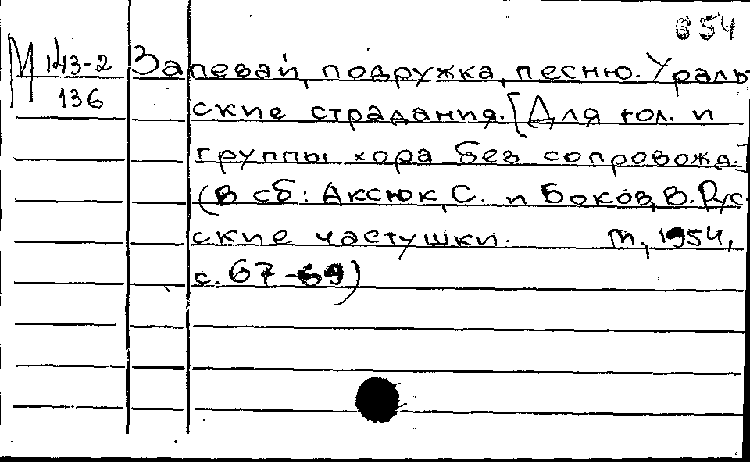 654
М 143-2 Запевай, подружка, песню. Ураль
136
ские страдания. [Для гол. и
группы хора без сопровожд.]
(В сб: Аксюк, С. и Боков, В. Рус
ские частушки. М, 1954,
с. 67-69)